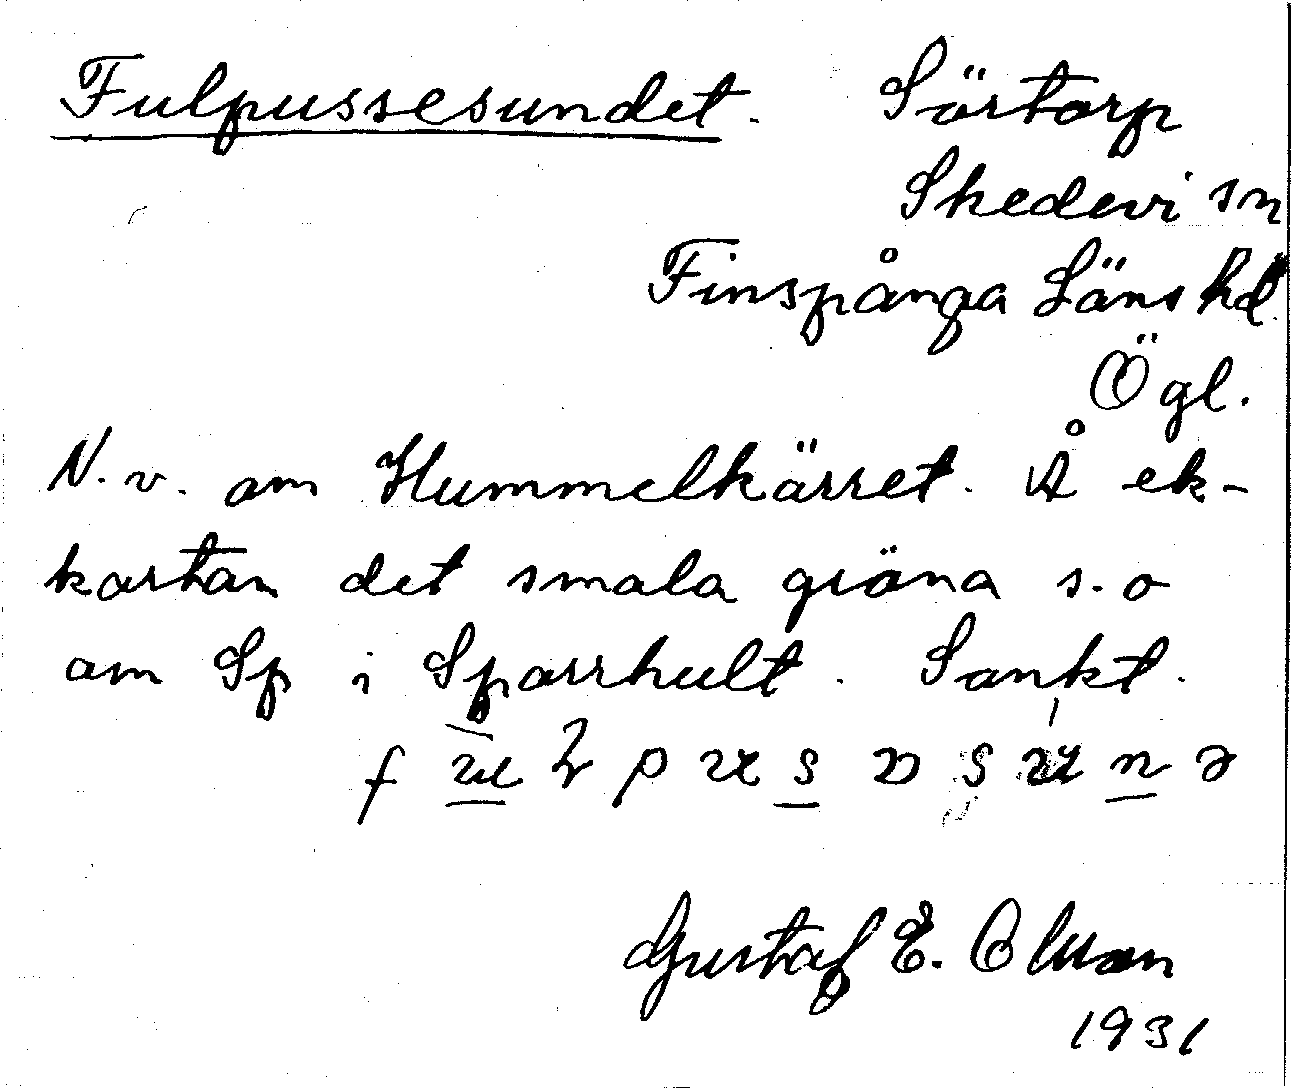 Fulpussesundet. Sörtorp
Skedevi sn
Finspånga Läns hd
Ögl.
N.v. om Hummelkärret. Å ek-
kartan det smala gröna s.o
om Sp i Sparrhult. Sankt.
Gustaf E. Olsson
1931